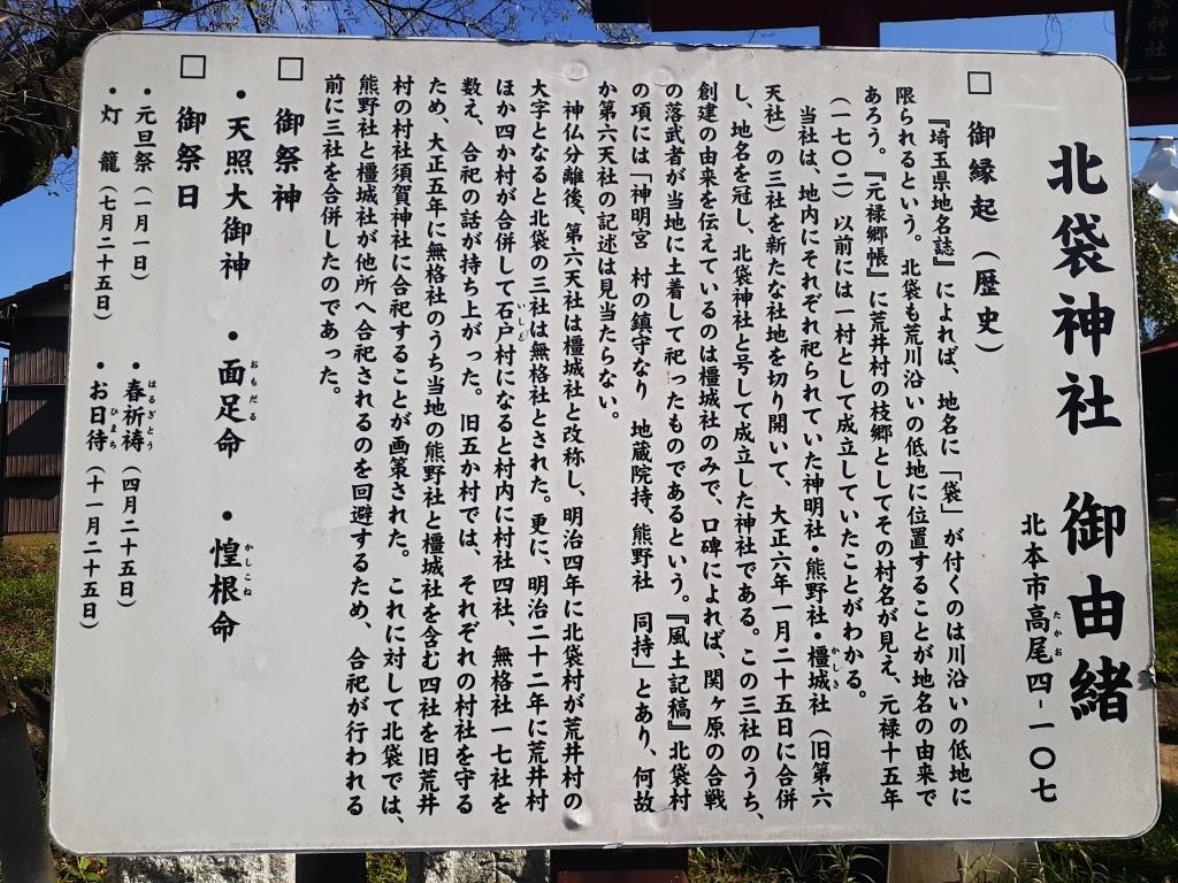 北袋神社 御由緒
北本市高尾四-一〇七
□ 御縁起（歴史）
『埼玉県地名誌』によれば、地名に「袋」が付くのは川沿いの低地に
限られるという。北袋も荒川沿いの低地に位置することが地名の由来で
あろう。『元禄郷帳』に荒井村の枝郷としてその村名が見え、元禄十五年
（一七〇二）以前には一村として成立していたことがわかる。
当社は、地内にそれぞれ祀られていた神明社・熊野社・橿城社（旧第六
天社）の三社を新たな社地を切り開いて、大正六年一月二十五日に合併
し、地名を冠し、北袋神社と号して成立した神社である。この三社のうち、
創建の由来を伝えているのは橿城社のみで、口碑によれば、関ヶ原の合戦
の落武者が当地に土着して祀ったものであるという。『風土記稿』北袋村
の項には「神明宮 村の鎮守なり 地蔵院持、熊野社 同持」とあり、何故
か第六天社の記述は見当たらない。
神仏分離後、第六天社は橿城社と改称し、明治四年に北袋村が荒井村の
大字となると北袋の三社は無格社とされた。更に、明治二十二年に荒井村
ほか四か村が合併して石戸村になると村内に村社四社、無格社一七社を
数え、合祀の話が持ち上がった。旧五か村では、それぞれの村社を守る
ため、大正五年に無格社のうち当地の熊野社と橿城社を含む四社を旧荒井
村の村社須賀神社に合祀することが画策された。これに対して北袋では、
熊野社と橿城社が他所へ合祀されるのを回避するため、合祀が行われる
前に三社を合併したのであった。
□ 御祭神
・天照大御神 ・面足命 ・惶根命
□ 御祭日
・元旦祭（一月一日） ・春祈祷（四月二十五日）
・灯籠（七月二十五日） ・お日待（十一月二十五日）